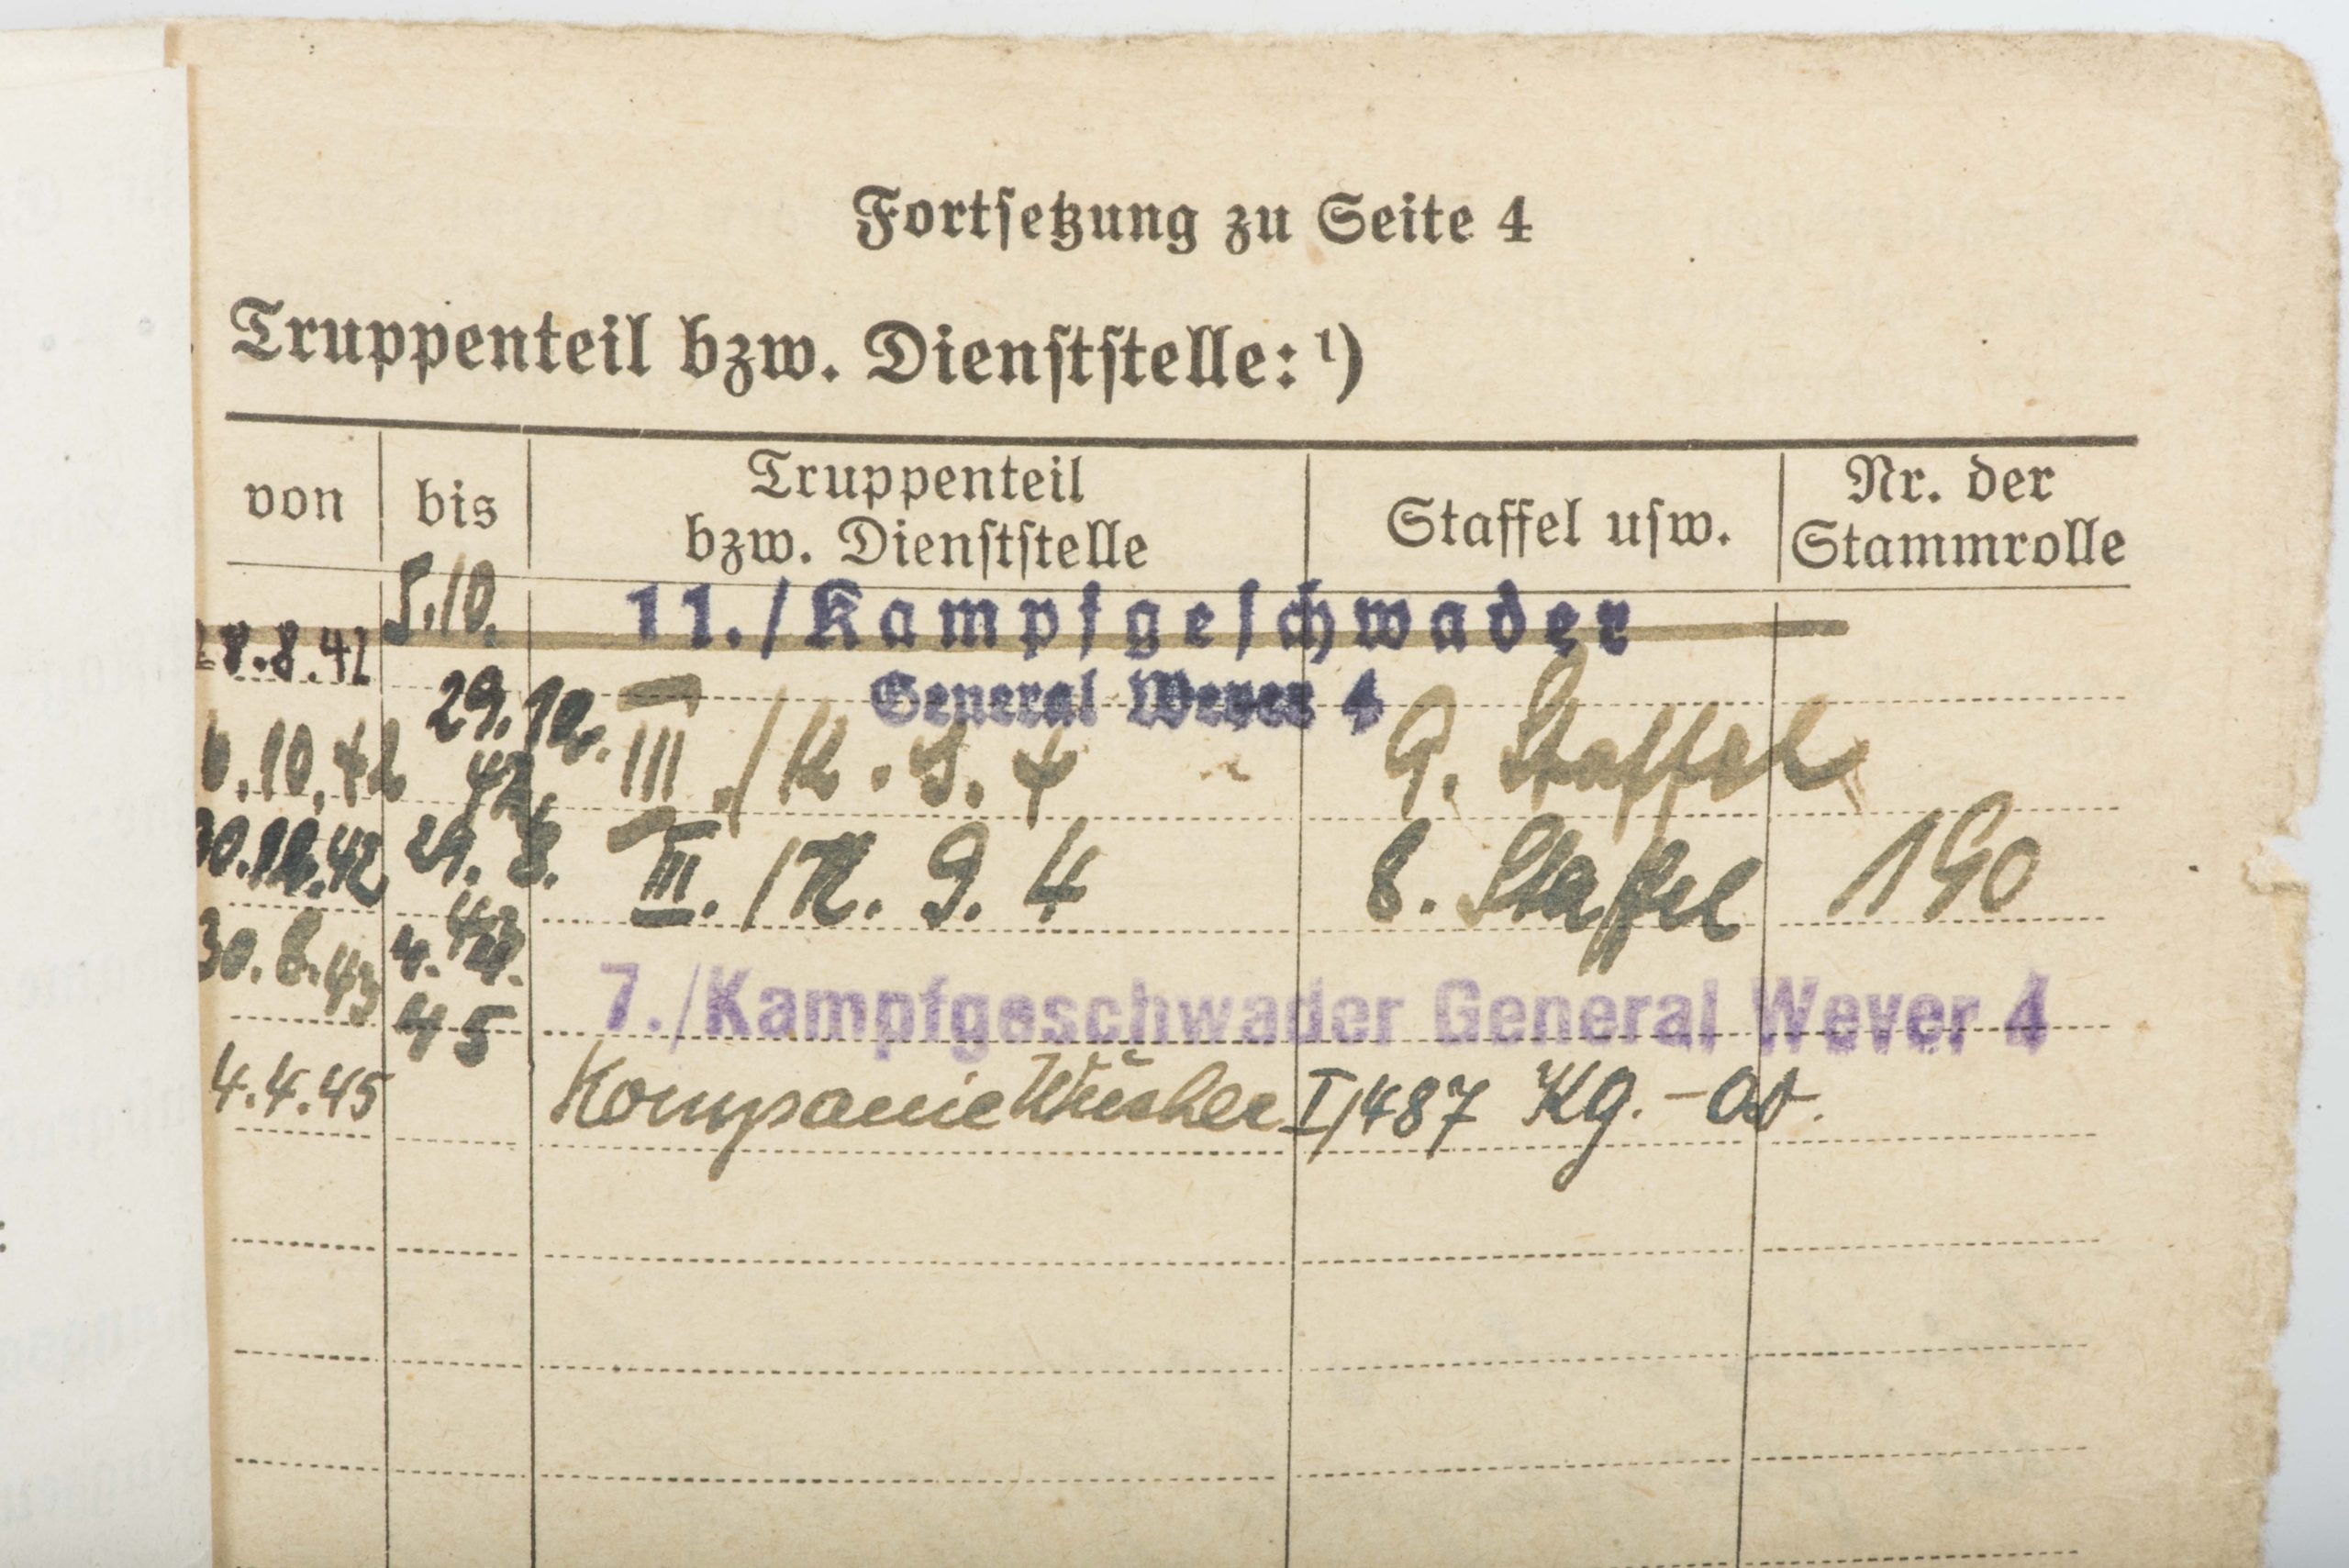 Fortsetzung zu Seite 4
Truppenteil bzw. Dienststelle: ¹)
von bis Truppenteil bzw. Dienststelle Staffel usw. Nr. der Stammrolle
28.8.42 5.10. 11./Kampfgeschwader
General Wever 4
6.10.42 29.12. 42. III./K.G.4 9. Staffel
30.12.42 29.8. 43 III./K.G.4 8. Staffel 190
30.8.43 4.4. 45 7./Kampfgeschwader General Wever 4
4.4.45 Kompanie I/487 Kg.